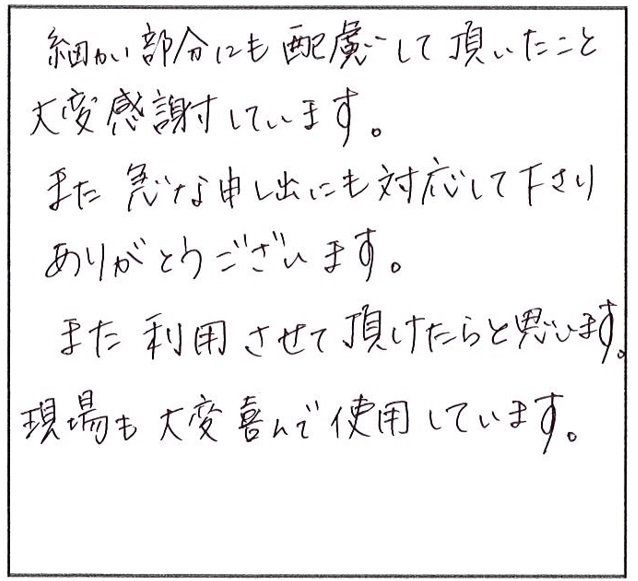 細かい部分にも配慮して頂いたこと
大変感謝しています。
また急な申し出にも対応して下さり
ありがとうございます。
また利用させて頂けたらと思います。
現場も大変喜んで使用しています。